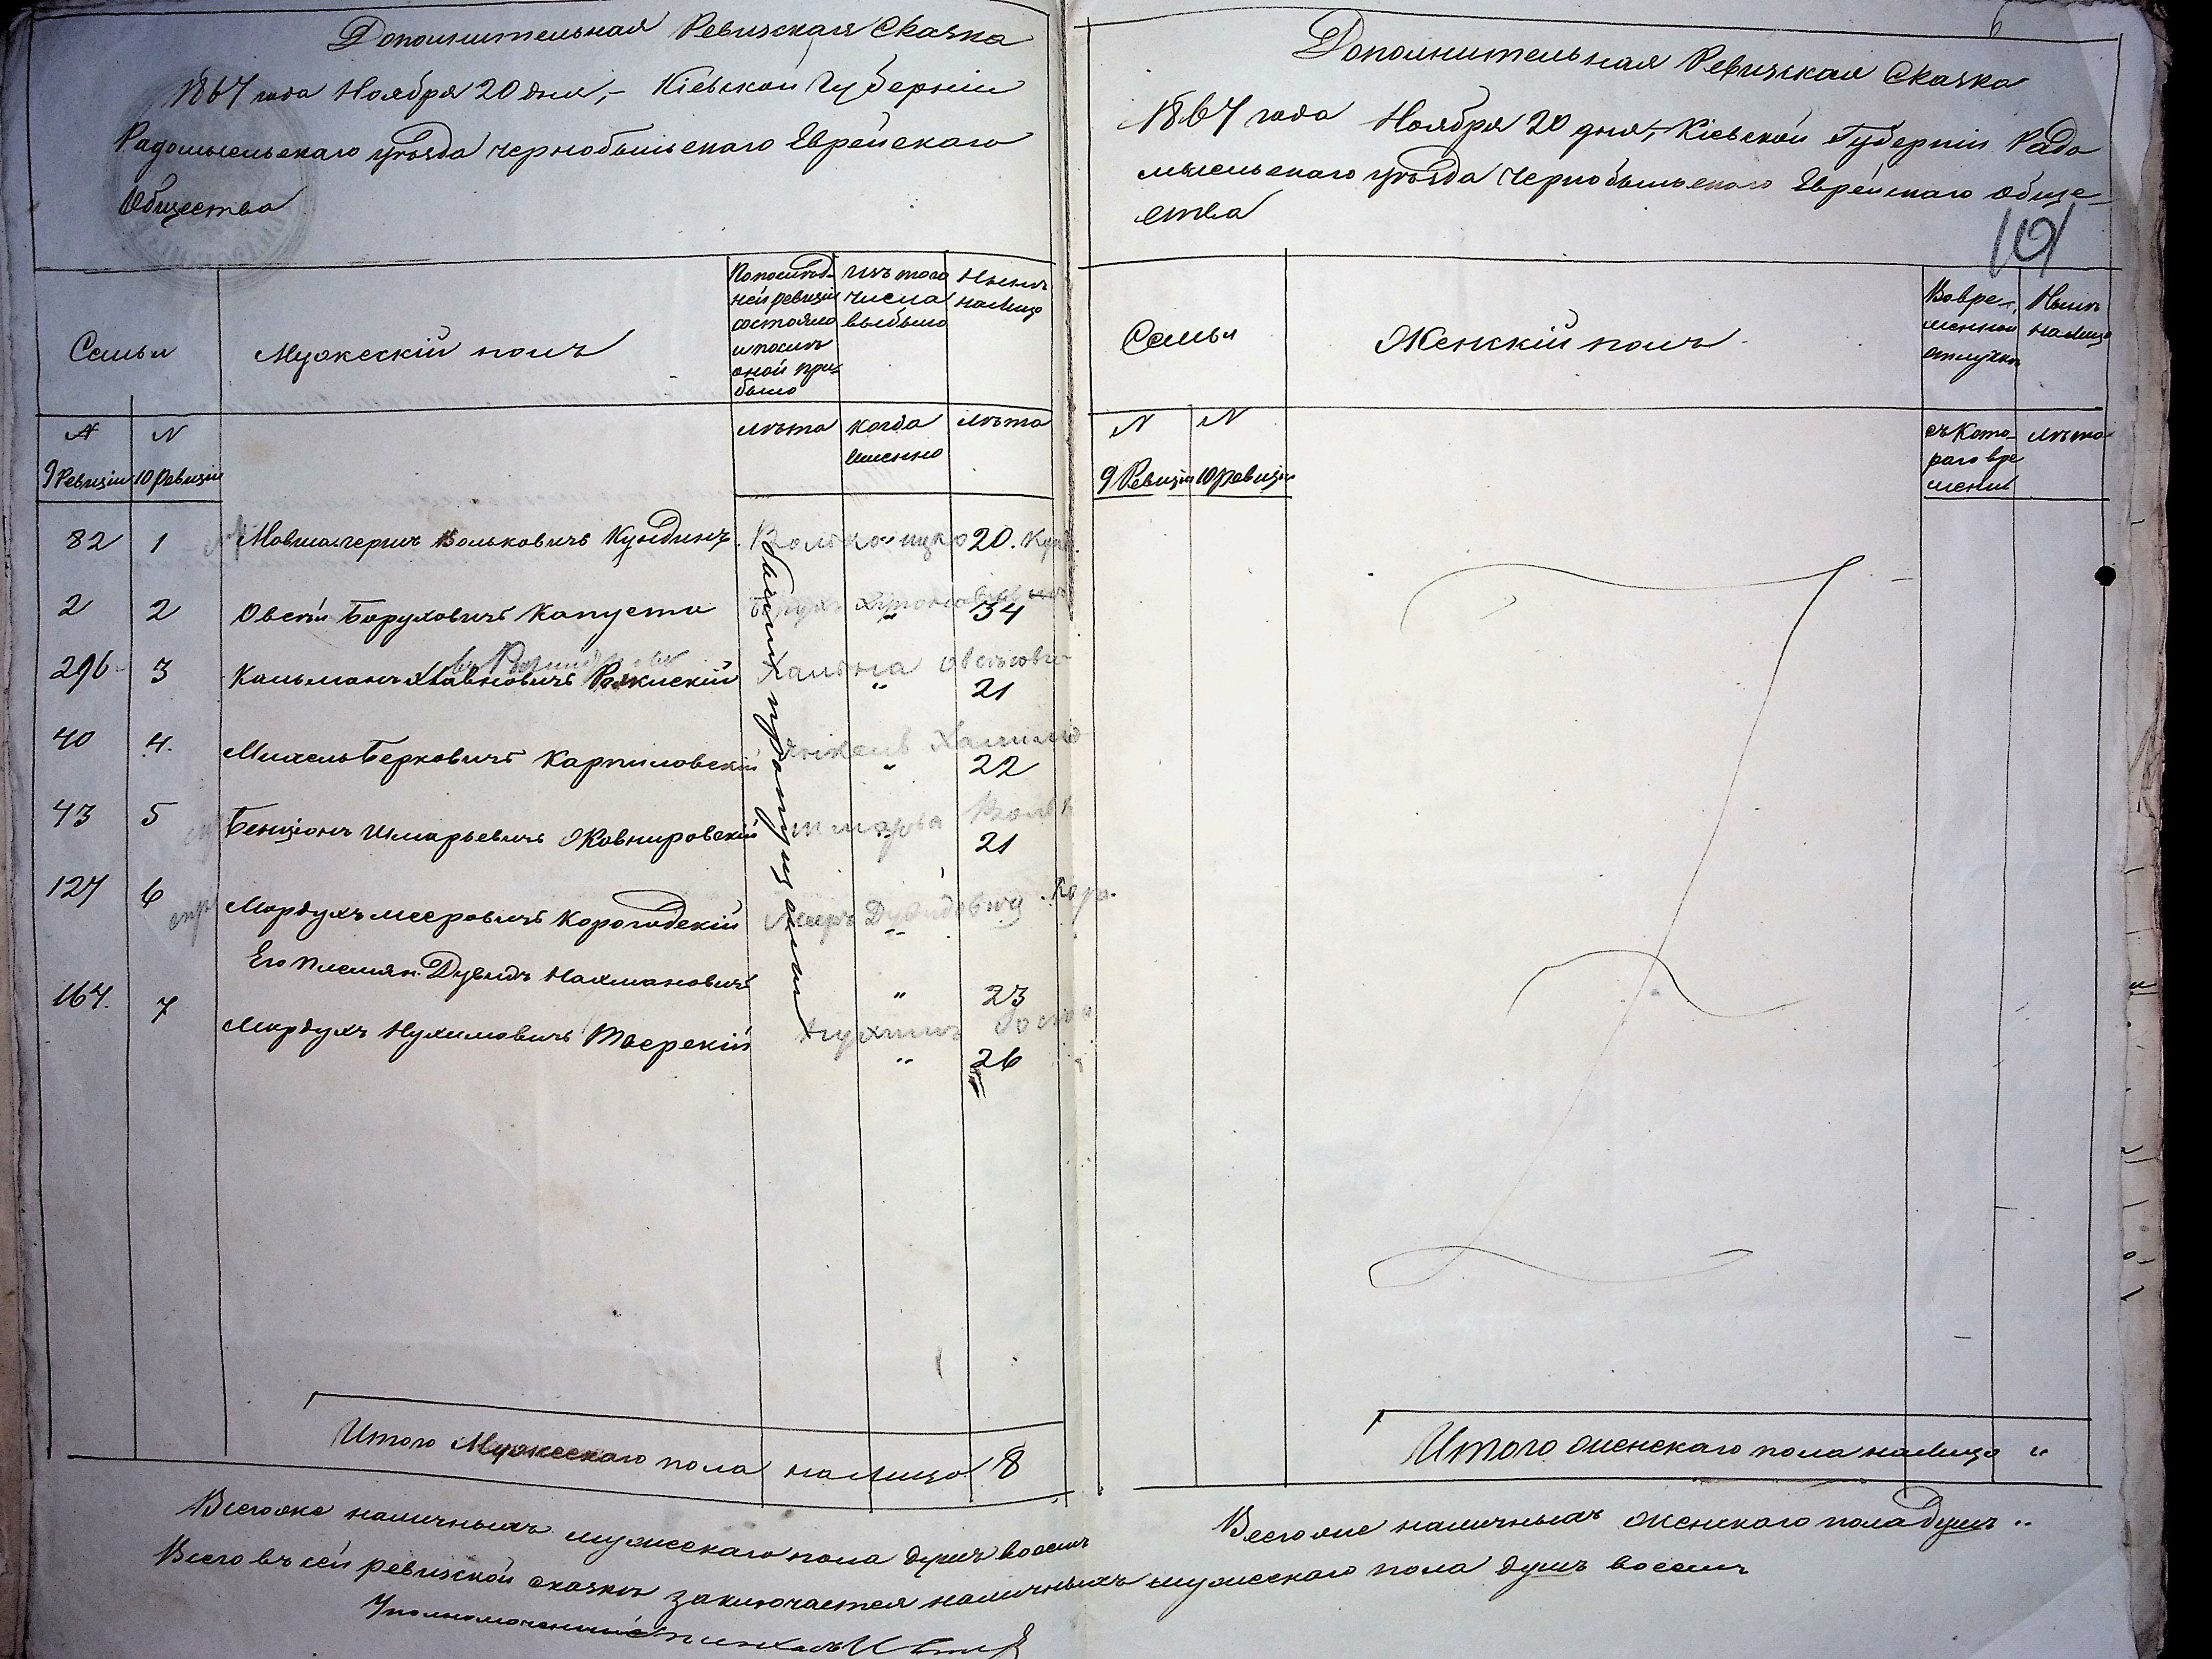 Дополнительная Ревизская Сказка
1867 года Ноября 20 дня,- Кіевской Губерніи
Радомысльскаго уѣзда Чернобыльскаго Еврейскаго
Общества
Семьи
Мужескій полъ
По послѣд-
ней ревизіи
состояло
и послѣ
оной при-
было
Изъ того
числа
выбыло
Нынѣ
налицо
N
9 Ревизіи
N
10 Ревизіи
лѣта
когда
именно
лѣта
были пропущены
82 1 Мовша-герш Вольковичъ Кундинъ. Волько ицко 20. Кунд.
2 2 Овсѣй Боруховичъ Капуста " 34
296 3 Кальманъ Рякискій Хальна " 21
40 4. Михель Берковичъ Карпиловскій " 22
43 5 Бенціонъ Шмарьевичъ Жовнировскій Шмарья Вольк 21
127 6 Мордухъ Мееровичъ Корогодскій Меиръ Дувидович Коро.
Его племян. Дувидъ Нахмановичъ " 23
167. 7 Мордухъ Нухимовичъ Нухимъ " 26
Итого Мужескаго пола налицо 8
Всего же наличныхъ мужескаго пола душъ восемь
Всего въ сей ревизской сказкѣ заключается наличныхъ мужескаго пола душъ восемь
Уполномоченный
6
Дополнительная Ревизская Сказка
1867 года Ноября 20 дня,- Кіевской Губерніи Радо
мысльскаго уѣзда Чернобыльскаго Еврейскаго обще-
ства
101
Семьи
Женскій полъ
Во вре-
менной
отлучкѣ
Нынѣ
налицо
N
9 Ревизіи
N
10 ревизіи
съ кото-
раго вре
мени
лѣта
Итого женскаго пола налицо "
Всего же наличныхъ женскаго пола душъ "